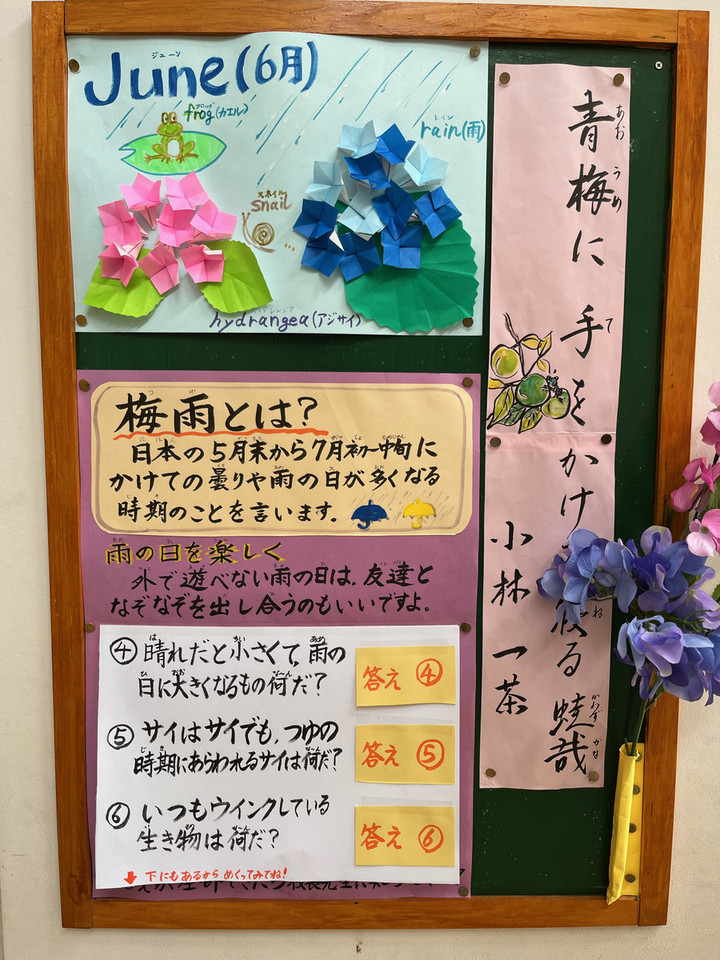 June(6月)
ジューン
frog(カエル)
フロッグ
rain(雨)
レイン
スネイル
snail
hydrangea(アジサイ)
青梅に 手をかけ
あお うめ て
る 蛙哉
ね かわず かな
小林 一茶
梅雨とは?
つ ゆ
日本の5月末から7月初〜中旬に
かけての曇りや雨の日が多くなる
時期のことを言います。
雨の日を楽しく
外で遊べない雨の日は、友達と
なぞなぞを出し合うのもいいですよ。
④ 晴れだと小さくて、雨の
日に大きくなるもの何だ?
答え ④
⑤ サイはサイでも、つゆの
時期にあらわれるサイは何だ?
答え ⑤
⑥ いつもウインクしている
生き物は何だ?
答え ⑥
↓ 下にもあるからめくってみてね!